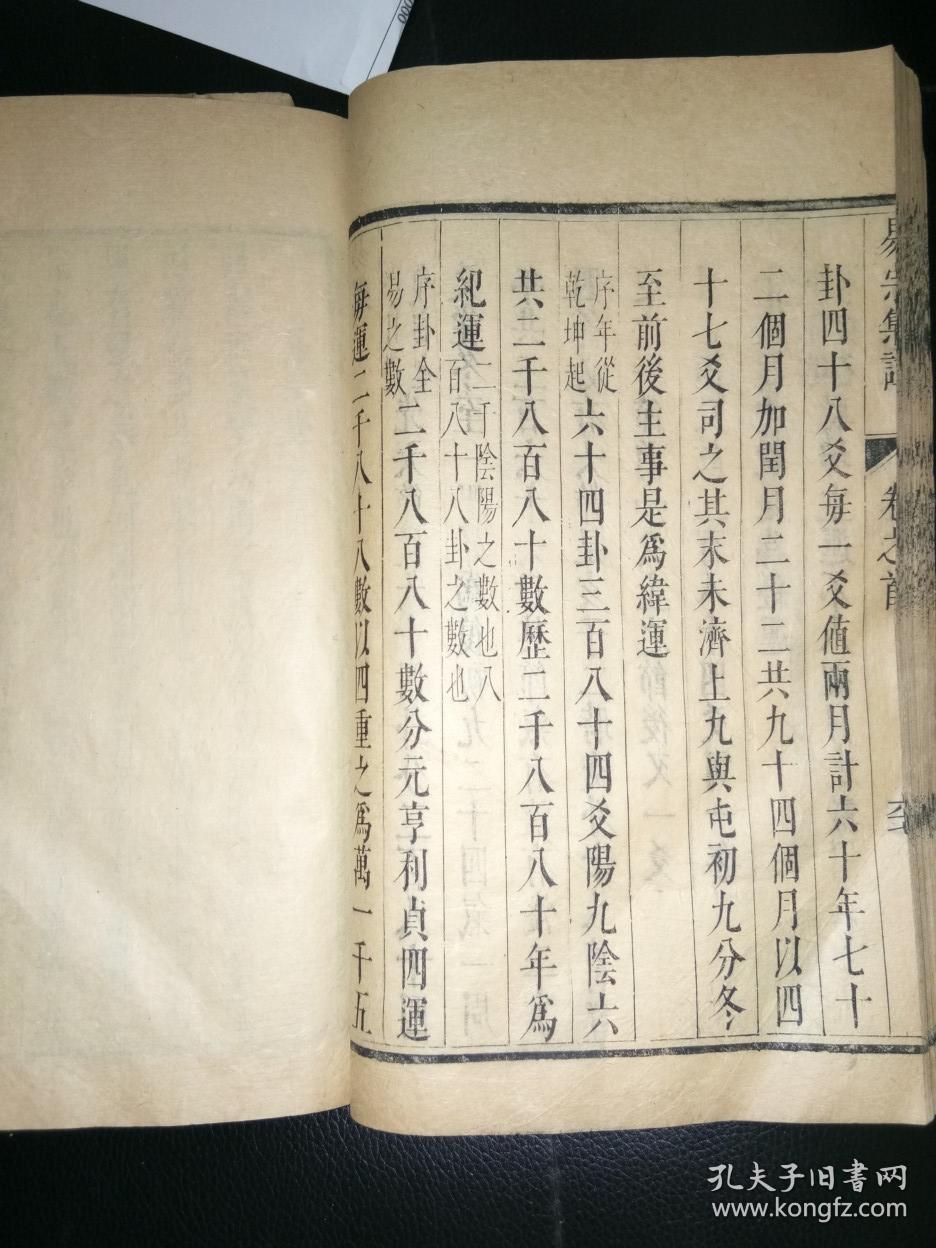 易宗集註
卷之首
卦四十八爻每一爻值兩月計六十年七十
二個月加閏月二十二共九十四個月以四
十七爻司之其末未濟上九與屯初九分冬
至前後主事是爲緯運
序年從
乾坤起
六十四卦三百八十四爻陽九陰六
共二千八百八十數歷二千八百八十年爲
紀運
二千陰陽之數也八
百八十八卦之數也
序卦全
易之數
二千八百八十數分元亨利貞四運
每運二千八百八十數以四重之爲萬一千五
孔夫子旧书网
www.kongfz.com
000